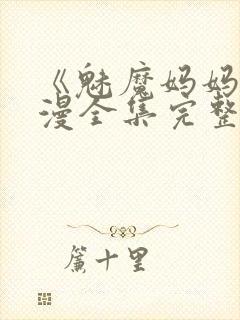 《魅魔妈妈
漫全集完整
簾十里